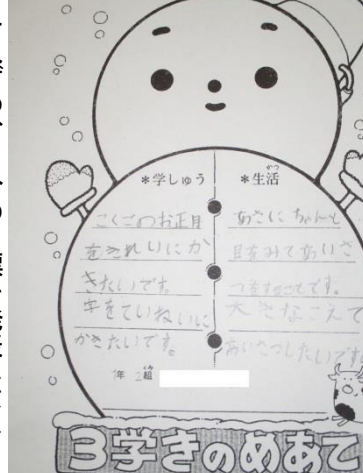 *学しゅう
こくごのお正月
をきれいにか
きたいです。
字をていねいに
かきたいです。
*生活
かつ
あさに ちゃんと
目をみてあいさ
つすることです。
大きなこえで
あいさつしたいです。
1年 2組
くみ
3学きのめあて